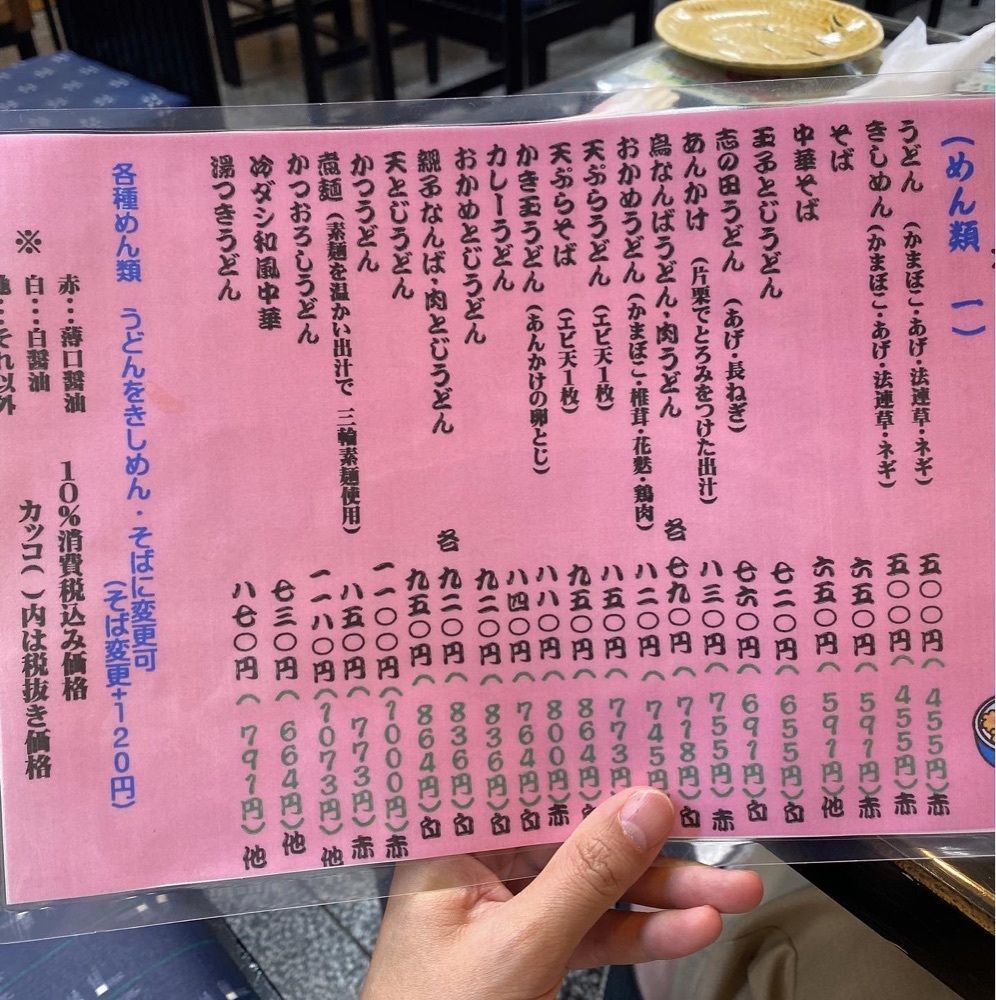 (めん類 一)
うどん (かまぼこ・あげ・法連草・ネギ) 五〇〇円(455円)赤
きしめん (かまぼこ・あげ・法連草・ネギ) 五〇〇円(455円)赤
そば 六五〇円(591円)赤
中華そば 六五〇円(591円)他
玉子とじうどん 七二〇円(655円)白
志の田うどん (あげ・長ねぎ) 七六〇円(691円)白
あんかけ (片栗でとろみをつけた出汁) 八三〇円(755円)赤
鳥なんばうどん・肉うどん 各 七九〇円(718円)白
おかめうどん (かまぼこ・椎茸・花麩・鶏肉) 八二〇円(745円)
天ぷらうどん (エビ天1枚) 八五〇円(773円)
天ぷらそば (エビ天1枚) 九五〇円(864円)
かき玉うどん (あんかけの卵とじ) 八八〇円(800円)赤
カレーうどん 八四〇円(764円)白
おかめとじうどん 九二〇円(836円)白
親子なんば・肉とじうどん 各 九二〇円(836円)白
天とじうどん 九五〇円(864円)白
かつうどん 一一〇〇円(1000円)赤
煮麺 (素麺を温かい出汁で 三輪素麺使用) 八五〇円(773円)赤
かつおろしうどん 一一八〇円(1073円)他
冷ダシ和風中華 七三〇円(664円)他
湯つきうどん 八七〇円(791円)他
各種めん類 うどんをきしめん・そばに変更可
(そば変更+120円)
※ 赤…薄口醤油 10%消費税込み価格
白…白醤油 カッコ( )内は税抜き価格
他…それ以外